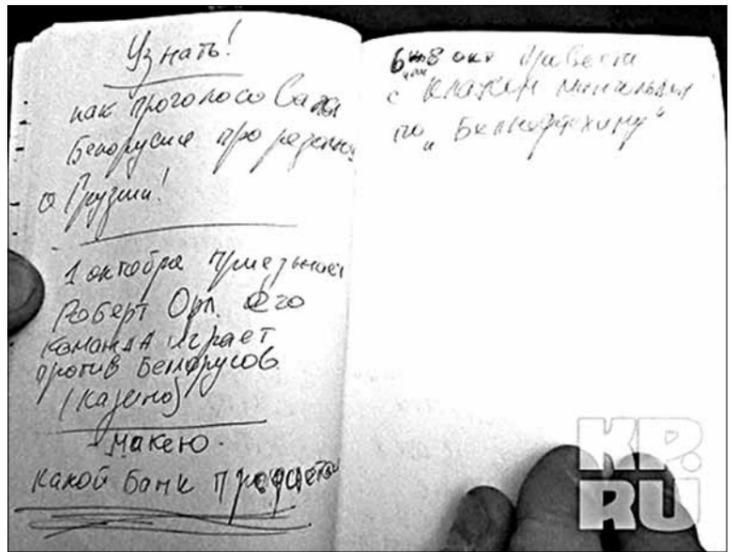 Узнать!
как проголосовала
Белоруссия про резолюц
о Грузии!
1 октября приезжает
Роберт Орл. его
команда играет
против Белорусов
(казино)
Макею.
Какой банк продается
6 8 окт провести
с
по "Белнефтехиму"
KP.
RU